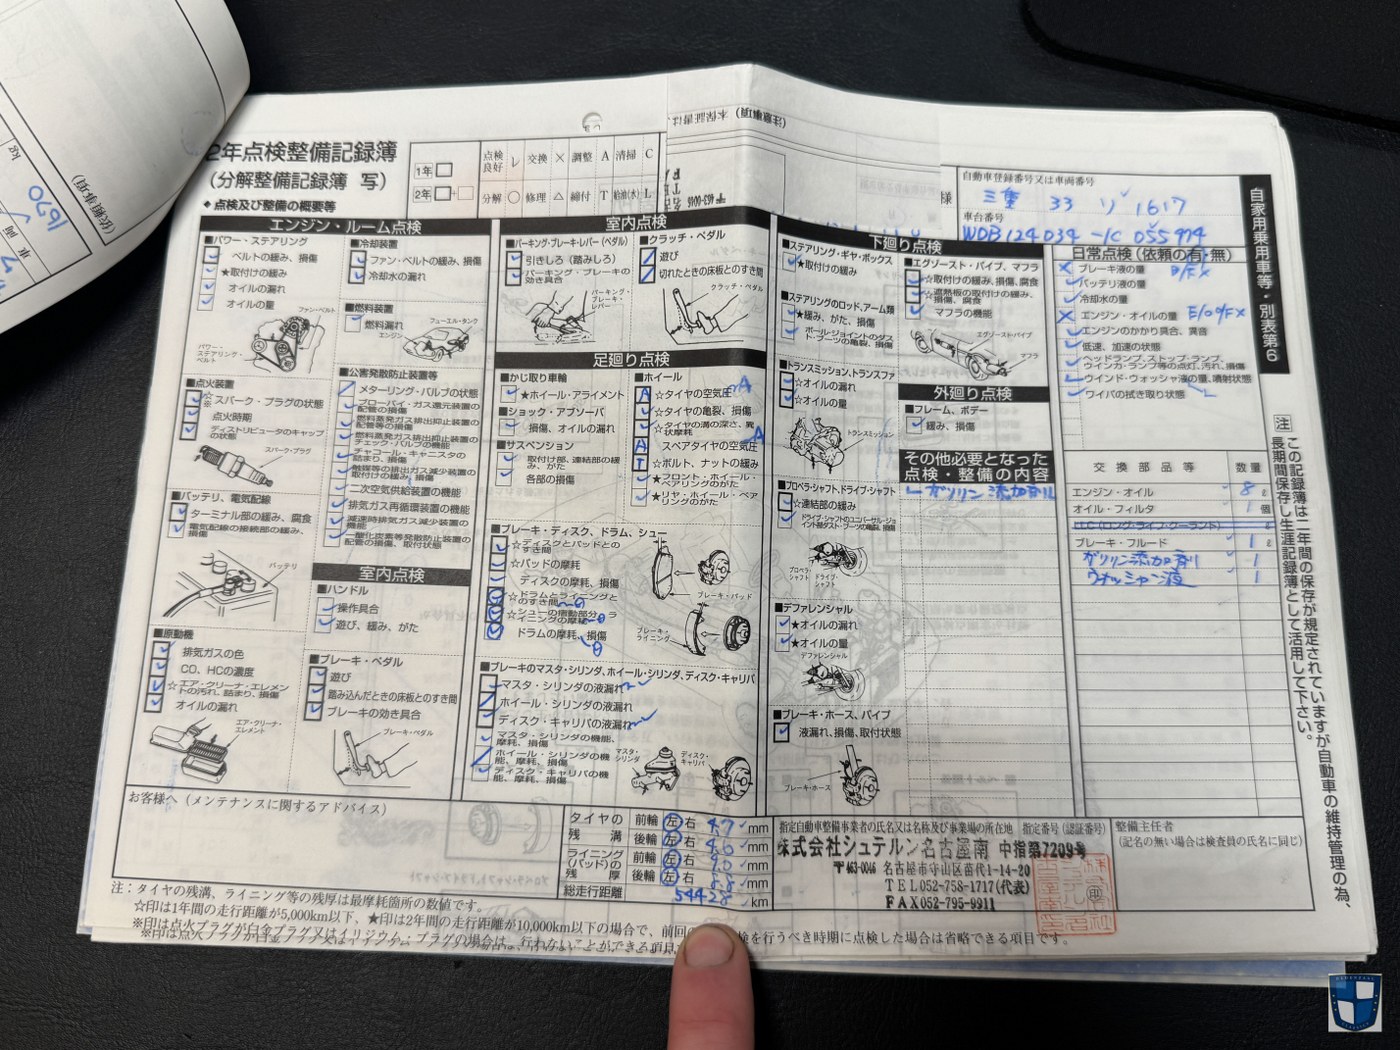 2年点検整備記録簿
(分解整備記録簿 写)
◆点検及び整備の概要等
1年
2年
点検良好 レ 交換 × 調整 A 清掃 C
分解 ○ 修理 △ 締付 T 給油(水) L
自動車登録番号又は車両番号
三重 33 ソ 1617
車台番号
WDB124034-1C 055974
自家用乗用車等・別表第6
エンジン・ルーム点検
■パワー・ステアリング
ベルトの緩み、損傷
★取付けの緩み
オイルの漏れ
オイルの量
ファン・ベルト
パワー・ステアリング・ベルト
■点火装置
☆スパーク・プラグの状態
点火時期
ディストリビュータのキャップの状態
スパーク・プラグ
■バッテリ、電気配線
ターミナル部の緩み、腐食
電気配線の接続部の緩み、損傷
バッテリ
■原動機
排気ガスの色
CO、HCの濃度
☆エア・クリーナ・エレメントの汚れ、詰まり、損傷
オイルの漏れ
エア・クリーナ・エレメント
■冷却装置
ファン・ベルトの緩み、損傷
冷却水の漏れ
■燃料装置
燃料漏れ
フューエル・タンク
エンジン
■公害発散防止装置等
メターリング・バルブの状態
ブローバイ・ガス還元装置の配管の損傷
燃料蒸発ガス排出抑止装置の配管等の損傷
燃料蒸発ガス排出抑止装置のチェック・バルブの機能
チャコール・キャニスタの詰まり、損傷
触媒等の排出ガス減少装置の取付けの緩み、損傷
二次空気供給装置の機能
排気ガス再循環装置の機能
減速時排気ガス減少装置の機能
一酸化炭素等発散防止装置の配管の損傷、取付状態
室内点検
■ハンドル
操作具合
遊び、緩み、がた
■ブレーキ・ペダル
遊び
踏み込んだときの床板とのすき間
ブレーキの効き具合
ブレーキ・ペダル
室内点検
■パーキング・ブレーキ・レバー(ペダル)
引きしろ(踏みしろ)
パーキング・ブレーキの効き具合
パーキング・ブレーキ・レバー
■クラッチ・ペダル
遊び
切れたときの床板とのすき間
クラッチ・ペダル
足廻り点検
■かじ取り車輪
★ホイール・アライメント
■ショック・アブソーバ
損傷、オイルの漏れ
■サスペンション
取付部、連結部の緩み、がた
各部の損傷
■ホイール
A ☆タイヤの空気圧 A
☆タイヤの亀裂、損傷
☆タイヤの溝の深さ、異状摩耗
A スペアタイヤの空気圧 A
T ☆ボルト、ナットの緩み
★フロント・ホイール・ベアリングのがた
★リヤ・ホイール・ベアリングのがた
■ブレーキ・ディスク、ドラム、シュー
☆ディスクとパッドとのすき間
☆パッドの摩耗
ディスクの摩耗、損傷
☆ドラムとライニングとのすき間
☆シューの摺動部分、ライニングの摩耗
ドラムの摩耗、損傷
ブレーキ・パッド
ブレーキ・ライニング
■ブレーキのマスタ・シリンダ、ホイール・シリンダ、ディスク・キャリパ
マスタ・シリンダの液漏れ
ホイール・シリンダの液漏れ
ディスク・キャリパの液漏れ
マスタ・シリンダの機能、摩耗、損傷
ホイール・シリンダの機能、摩耗、損傷
ディスク・キャリパの機能、摩耗、損傷
マスタ・シリンダ
ディスク・キャリパ
下廻り点検
■ステアリング・ギヤ・ボックス
★取付けの緩み
■ステアリングのロッド、アーム類
★緩み、がた、損傷
ボール・ジョイントのダスト・ブーツの亀裂、損傷
■トランスミッション、トランスファ
☆オイルの漏れ
☆オイルの量
トランスミッション
■プロペラ・シャフト、ドライブ・シャフト
☆連結部の緩み
ドライブ・シャフトのユニバーサル・ジョイント部ダスト・ブーツの亀裂、損傷
プロペラ・シャフト ドライブ・シャフト
■デファレンシャル
★オイルの漏れ
★オイルの量
デファレンシャル
■ブレーキ・ホース、パイプ
液漏れ、損傷、取付状態
ブレーキ・ホース
■エグゾースト・パイプ、マフラ
☆取付けの緩み、損傷、腐食
☆遮熱板の取付けの緩み、損傷、腐食
マフラの機能
エグゾーストパイプ
マフラ
外廻り点検
■フレーム、ボデー
緩み、損傷
その他必要となった点検・整備の内容
レ ガソリン添加剤
日常点検(依頼の有・無)
× ブレーキ液の量 B/Fx
バッテリ液の量
冷却水の量
× エンジン・オイルの量 E/O O/Fx
エンジンのかかり具合、異音
低速、加速の状態
ヘッドランプ、ストップ・ランプ、ウインカ・ランプ等の点灯、汚れ、損傷
L ウインド・ウォッシャ液の量、噴射状態
ワイパの拭き取り状態
交換部品等 数量
エンジン・オイル 8 ℓ
オイル・フィルタ 1 個
LLC(ロング・ライフ・クーラント) ℓ
ブレーキ・フルード 1 ℓ
ガソリン添加剤 1
ウォッシャー液 1
注 この記録簿は二年間の保存が規定されていますが自動車の維持管理の為、
長期間保存し生涯記録簿として活用して下さい。
お客様へ(メンテナンスに関するアドバイス)
タイヤの残溝 前輪 左 右 4.7 mm
後輪 左 右 4.6 mm
ライニング(パッド)の残厚 前輪 左 右 9.0 mm
後輪 左 右 mm
総走行距離 54428 km
指定自動車整備事業者の氏名又は名称及び事業場の所在地 指定番号(認証番号)
株式会社シュテルン名古屋南 中指第7209号
〒463-0046 名古屋市守山区苗代1-14-20
TEL052-758-1717(代表)
FAX052-795-9911
整備主任者
(記名の無い場合は検査員の氏名に同じ)
注:タイヤの残溝、ライニング等の残厚は最摩耗箇所の数値です。
☆印は1年間の走行距離が5,000km以下、★印は2年間の走行距離が10,000km以下の場合で、前回の 検を行うべき時期に点検した場合は省略できる項目です。
※印は点火プラグが白金プラグ又はイリジウム・プラグの場合は、行わないことができる項目
(依頼事項)
1670
kg